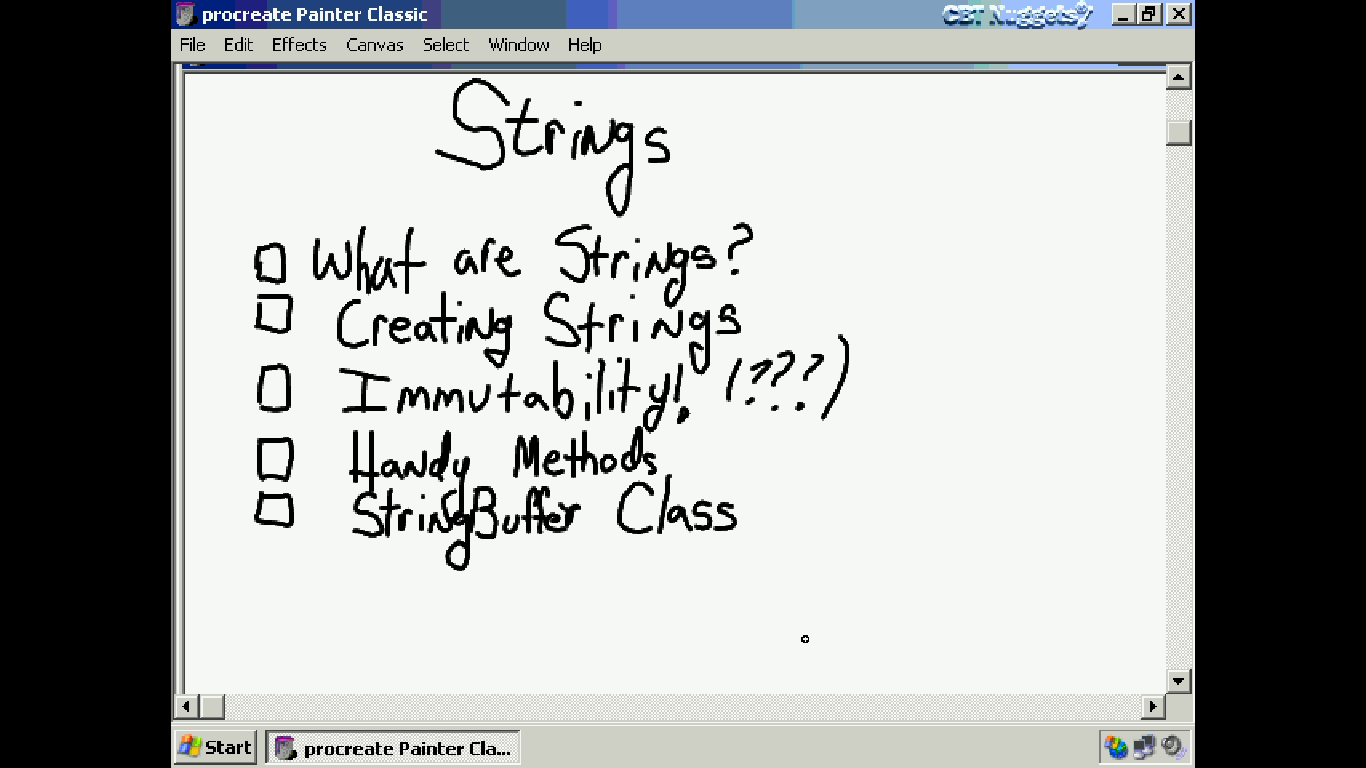 procreate Painter Classic
CBT Nuggets
File Edit Effects Canvas Select Window Help
Strings
What are Strings?
Creating Strings
Immutability! (???)
Handy Methods
StringBuffer Class
Start procreate Painter Cla...